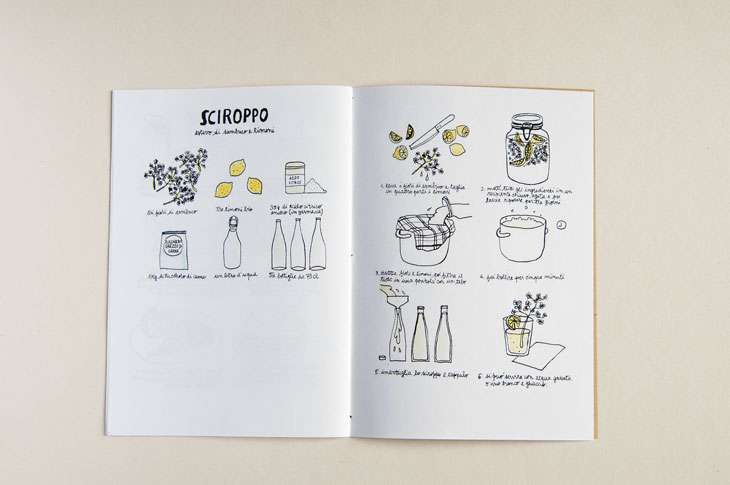 SCIROPPO
estivo di sambuco e limoni
sei fiori di sambuco
tre limoni bio
ACIDO
CITRICO
30 g di acido citrico
(in farmacia)
ZUCCHERO
GREZZO DI
CANNA
1 kg di zucchero di canna
un litro d'acqua
tre bottiglie da 75 cl
1. lava i fiori di sambuco e taglia
in quattro parti i limoni
2. metti tutti gli ingredienti in un
recipiente chiuso, agita e poi
lascia riposare per tre giorni
3. estrai fiori e limoni poi filtra il
tutto in una pentola con un telo
4. fai bollire per cinque minuti
5
5. imbottiglia lo sciroppo e tappalo
6. si può servire con acqua gassata
o vino bianco e ghiaccio.